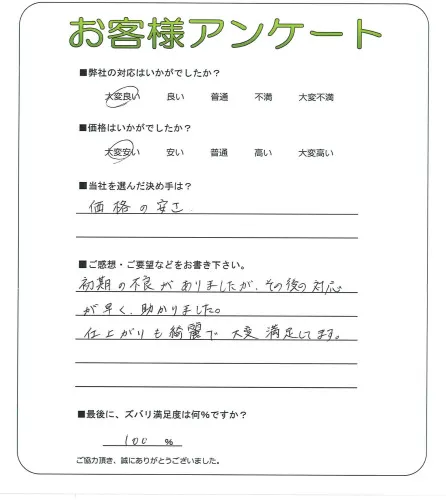 お客様アンケート
■弊社の対応はいかがでしたか？
大変良い 良い 普通 不満 大変不満
■価格はいかがでしたか？
大変安い 安い 普通 高い 大変高い
■当社を選んだ決め手は？
価格の安さ.
■ご感想・ご要望などをお書き下さい。
初期の不良がありましたが、その後の対応
が早く、助かりました。
仕上がりも綺麗で大変満足してます。
■最後に、ズバリ満足度は何%ですか？
100 %
ご協力頂き、誠にありがとうございました。